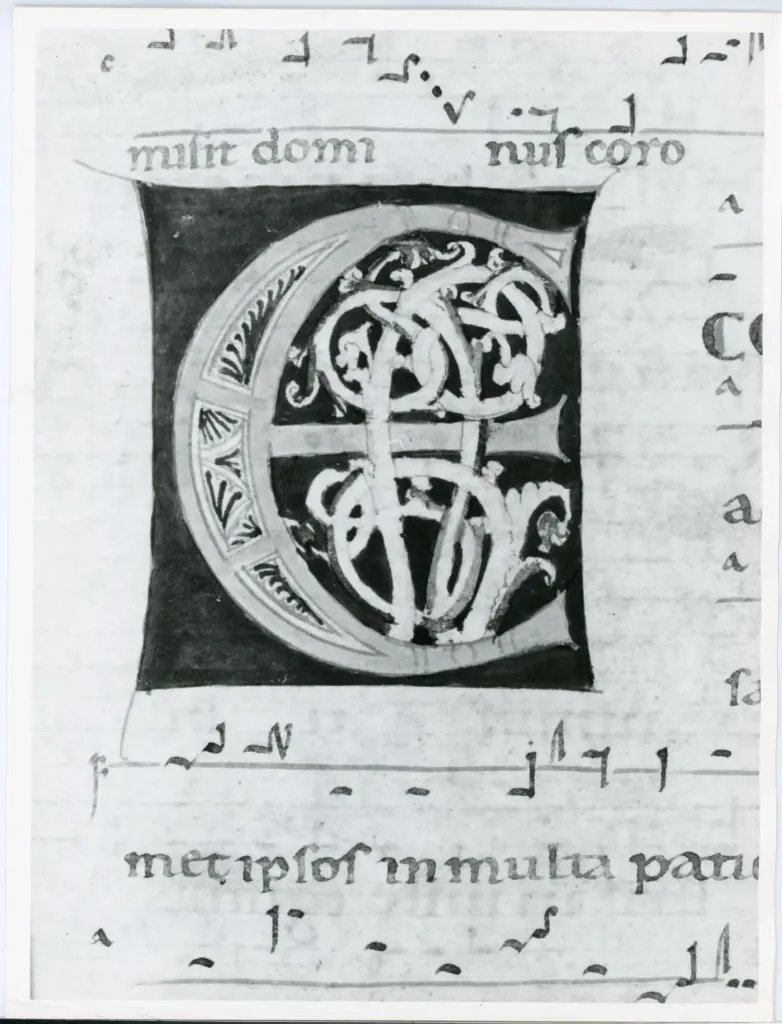 c
misit domi nus coro
a
E
CO
a
a
a
sa
F
met ipsos in multa patie
a